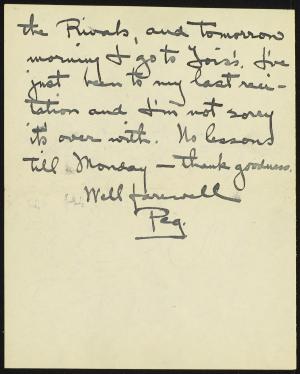 the Rivals, and tomorrow
morning I go to Lois's. I've
just been to my last reci-
tation and I'm not sorry
it's over with. No lessons
till Monday — thank goodness.
Well farewell
Peg.